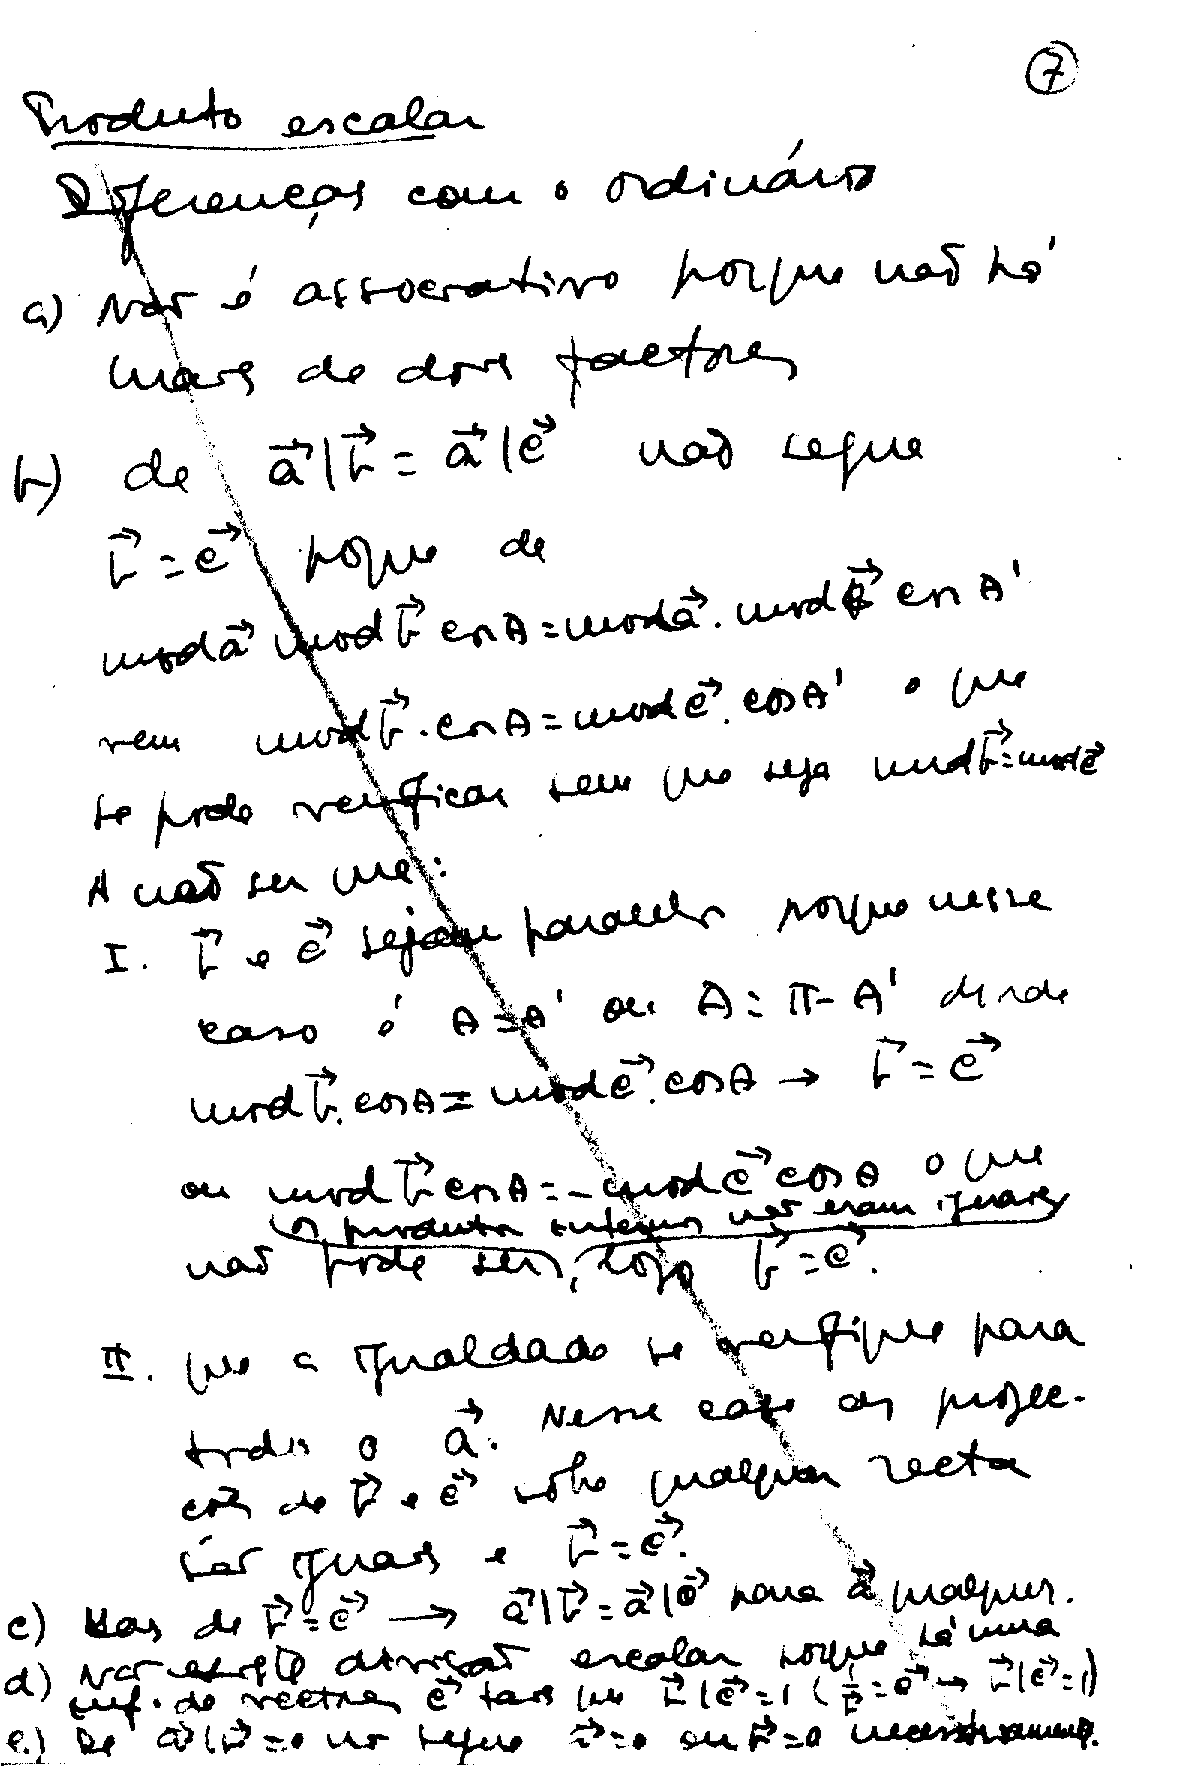 7
Produto escalar
Diferenças com o ordinário
a) Não é associativo porque não há
mais de dois factores
b) de a⃗|b⃗ = a⃗|c⃗ não segue
b⃗ = c⃗ porque de
mod a⃗ mod b⃗ cos A = mod a⃗. mod c⃗ cos A'
vem mod b⃗. cos A = mod c⃗. cos A' o que
se pode verificar sem que seja mod b⃗ = mod c⃗
A não ser que:
I. b⃗ e c⃗ sejam paralelos porque nesse
caso é A = A' ou A = π - A' donde
mod b⃗. cos A = mod c⃗. cos A → b⃗ = c⃗
ou mod b⃗ cos A = - mod c⃗ cos A o que
os produtos internos não eram iguais
não pode ser, logo b⃗ = c⃗.
II. que a igualdade se verifique para
todo o a⃗. Nesse caso as projec-
ções de b⃗ e c⃗ sobre qualquer recta
são iguais e b⃗ = c⃗.
c) Mas de b⃗ = c⃗ → a⃗|b⃗ = a⃗|c⃗ para a⃗ qualquer.
d) Não existe divisão escalar porque há uma
inf. de vectores c⃗ tais que b⃗|c⃗ = 1 (1/b⃗ = c⃗ → b⃗|c⃗ = 1)
e.) De a⃗|b⃗ = 0 não segue a⃗ = 0 ou b⃗ = 0 necessariamente.